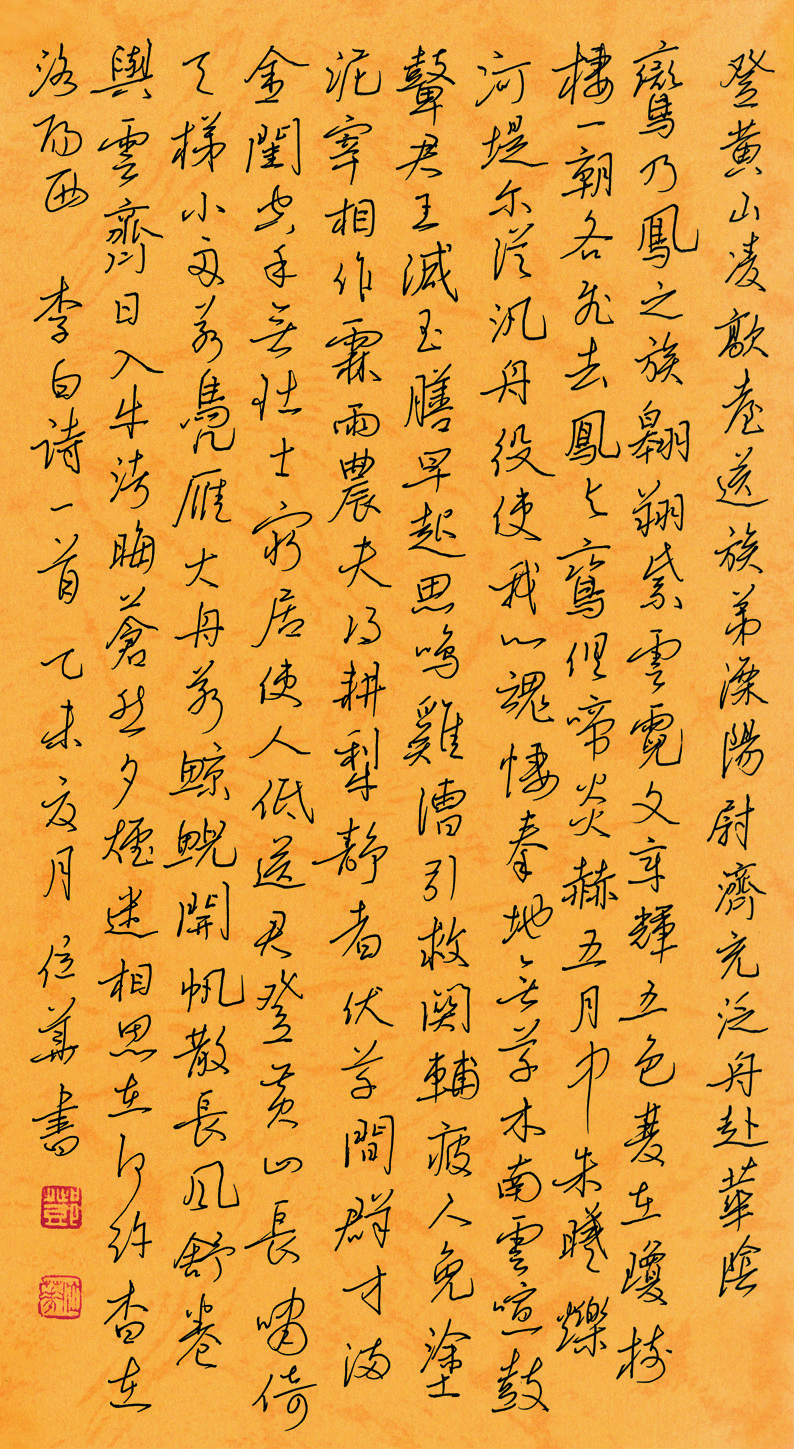 登黄山凌歊臺送族弟溧陽尉濟充泛舟赴華陰
鸞乃鳳之族翱翔紫雲霓文章輝五色雙在瓊樹
棲一朝各飛去鳳与鸞俱啼炎赫五月中朱曦爍
河堤尔從汎舟役使我心魂悽秦地無草木南雲喧鼓
鼙君王減玉膳早起思鳴雞漕引救關輔疲人免塗
泥宰相作霖雨農夫得耕犁靜者伏草間群才滿
金閨空手無壯士窮居使人低送君登黄山長嘯倚
天梯小舟若鳧雁大舟若鯨鯢開帆散長風舒卷
與雲齊日入牛渚晦蒼然夕煙迷相思在何許杳在
洛陽西 李白詩一首 乙未夏月 位 書